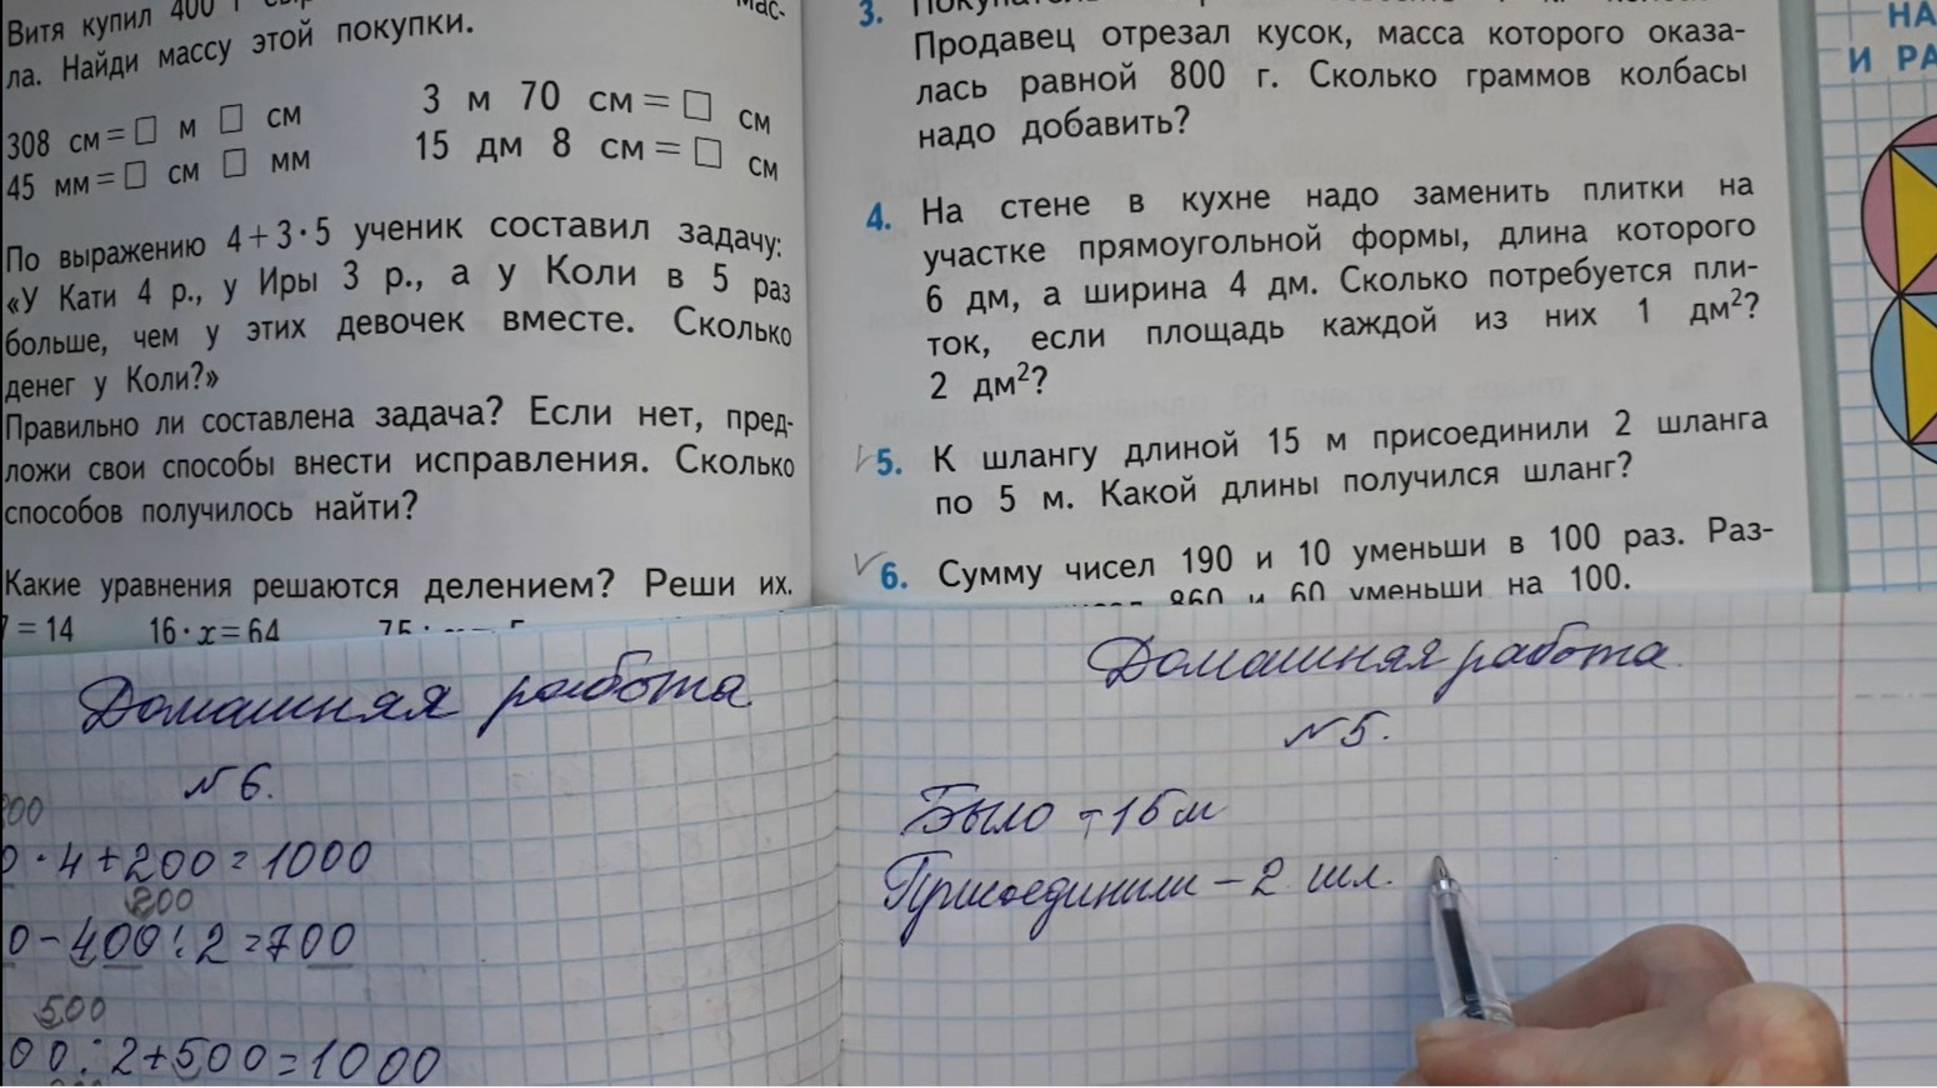 Витя купил 400 г
ла. Найди массу этой покупки.
308 см = □ м □ см
45 мм = □ см □ мм
3 м 70 см = □ см
15 дм 8 см = □ см
По выражению 4 + 3 · 5 ученик составил задачу:
«У Кати 4 р., у Иры 3 р., а у Коли в 5 раз
больше, чем у этих девочек вместе. Сколько
денег у Коли?»
Правильно ли составлена задача? Если нет, пред-
ложи свои способы внести исправления. Сколько
способов получилось найти?
Какие уравнения решаются делением? Реши их.
= 14 16 · x = 64
3.
Продавец отрезал кусок, масса которого оказа-
лась равной 800 г. Сколько граммов колбасы
надо добавить?
4. На стене в кухне надо заменить плитки на
участке прямоугольной формы, длина которого
6 дм, а ширина 4 дм. Сколько потребуется пли-
ток, если площадь каждой из них 1 дм²?
2 дм²?
5. К шлангу длиной 15 м присоединили 2 шланга
по 5 м. Какой длины получился шланг?
6. Сумму чисел 190 и 10 уменьши в 100 раз. Раз-
860 и 60 уменьши на 100.
НА
И РА
Домашняя работа
№ 6.
0 · 4 + 200 = 1000
200
0 - 400 : 2 = 700
500
00 : 2 + 500 = 1000
Домашняя работа.
№ 5.
Было - 15 м
Присоединили - 2 шл.